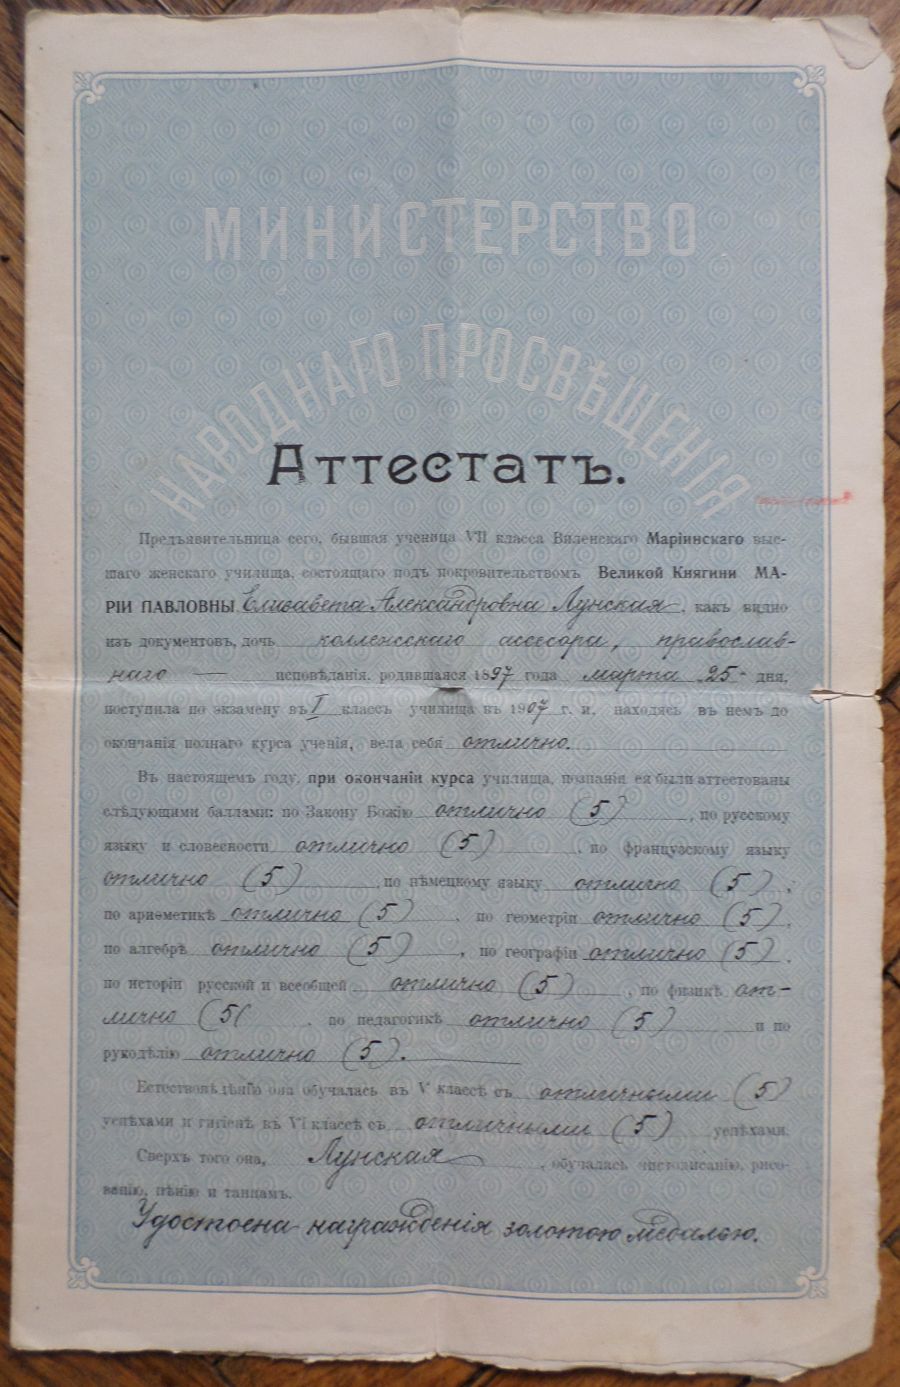 МИНИСТЕРСТВО
НАРОДНАГО ПРОСВѢЩЕНІЯ
Аттестатъ.
Предъявительница сего, бывшая ученица VII класса Виленскаго Маріинскаго выс-
шаго женскаго училища, состоящаго подъ покровительствомъ Великой Княгини МА-
РІИ ПАВЛОВНЫ Елизавета Александровна Лунская, какъ видно
изъ документовъ, дочь коллежскаго ассесора, православ-
наго — исповѣданія, родившаяся 1897 года марта 25 дня,
поступила по экзамену въ I классъ училища въ 1907 г. и, находясь въ немъ до
окончанія полнаго курса ученія, вела себя отлично.
Въ настоящемъ году, при окончаніи курса училища, познанія ея были аттестованы
слѣдующими баллами: по Закону Божію отлично (5), по русскому
языку и словесности отлично (5), по французскому языку
отлично (5), по нѣмецкому языку отлично (5),
по ариѳметикѣ отлично (5), по геометріи отлично (5),
по алгебрѣ отлично (5), по географіи отлично (5),
по исторіи русской и всеобщей отлично (5), по физикѣ от-
лично (5(, по педагогикѣ отлично (5) и по
рукодѣлію отлично (5).
Естествовѣдѣнію она обучалась въ V классѣ съ отличными (5)
успѣхами и гигіенѣ въ VI классѣ съ отличными (5) успѣхами.
Сверхъ того она, Лунская, обучалась чистописанію, рисо-
ванію, пѣнію и танцамъ.
Удостоена награжденія золотою медалью.